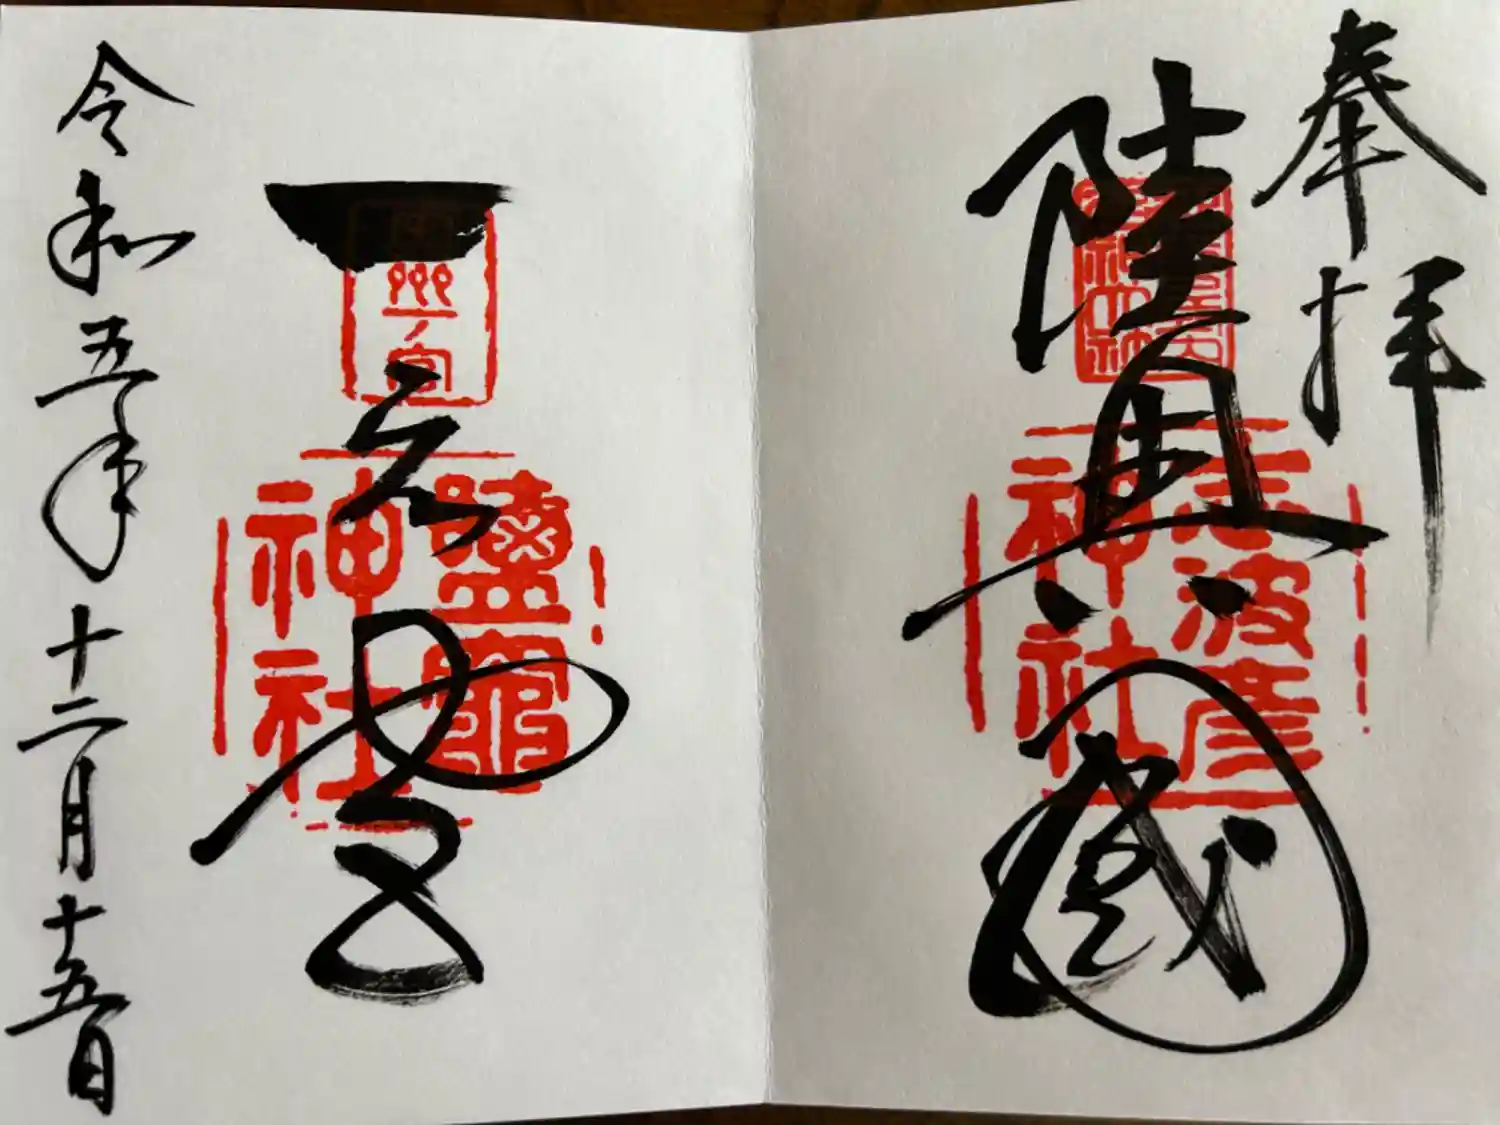 奉拝
陸奥國
志波彦
神社
一之宮
奥州一ノ宮
鹽竈
神社
令和五年十二月十五日